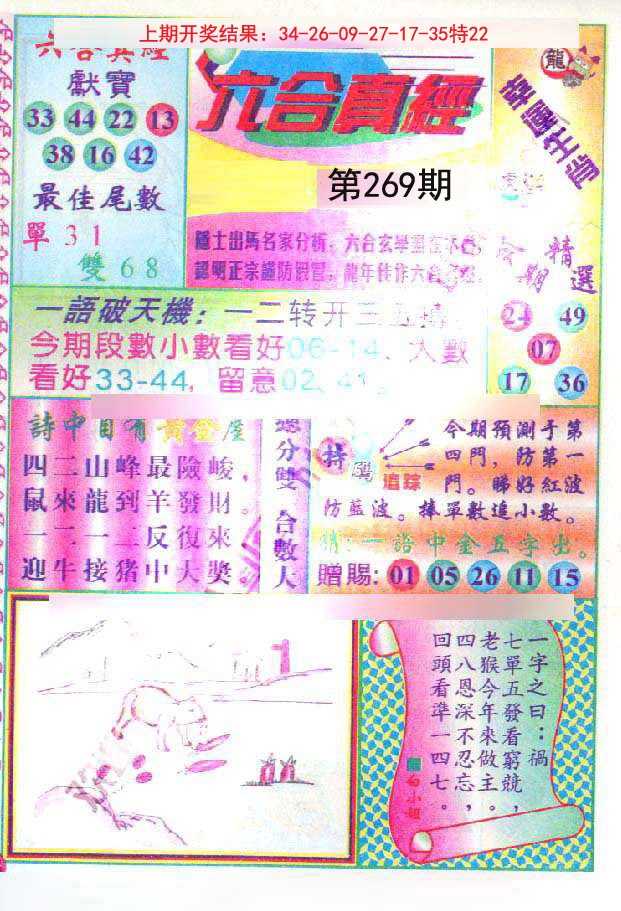 上期开奖结果：34-26-09-27-17-35特22
六合真經
獻寶
33 44 22 13
38 16 42
最佳尾數
單31
雙68
六合真經
第269期
隱士出馬名家分析，六合玄學
認明正宗謹防假冒，龍年佳作六合
龍
期
精選
24 49
07
17 36
一語破天機：一二转开三五
今期段數小數看好06-14、大數
看好33-44，留意02、41。
詩中自有黃金屋
四二山峰最險峻，
鼠來龍到羊發財。
一二一二反復來
迎牛接猪中大獎。
總分雙 合數大
特
追踪
今期預測于第
四門，防第一
門。睇好紅波
防藍波。捧單數追小數。
一語中金五字出。
贈賜：01 05 26 11 15
1
一字之曰：禍
七單五發看窮競，
老猴今年來做主。
四八恩深不忍忘，
回頭看準一四七。
白小姐